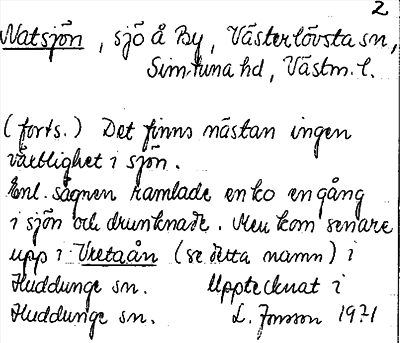 2
Natsjön, sjö å By, Västerlövsta sn,
Simtuna hd, Västm. l.
(forts.) Det finns nästan ingen
växtlighet i sjön.
Enl. sägnen ramlade en ko en gång
i sjön och drunknade. Men kom senare
upp i Vretaån (se detta namn) i
Huddunge sn. Upptecknat i
Huddunge sn. L. Jonsson 1971